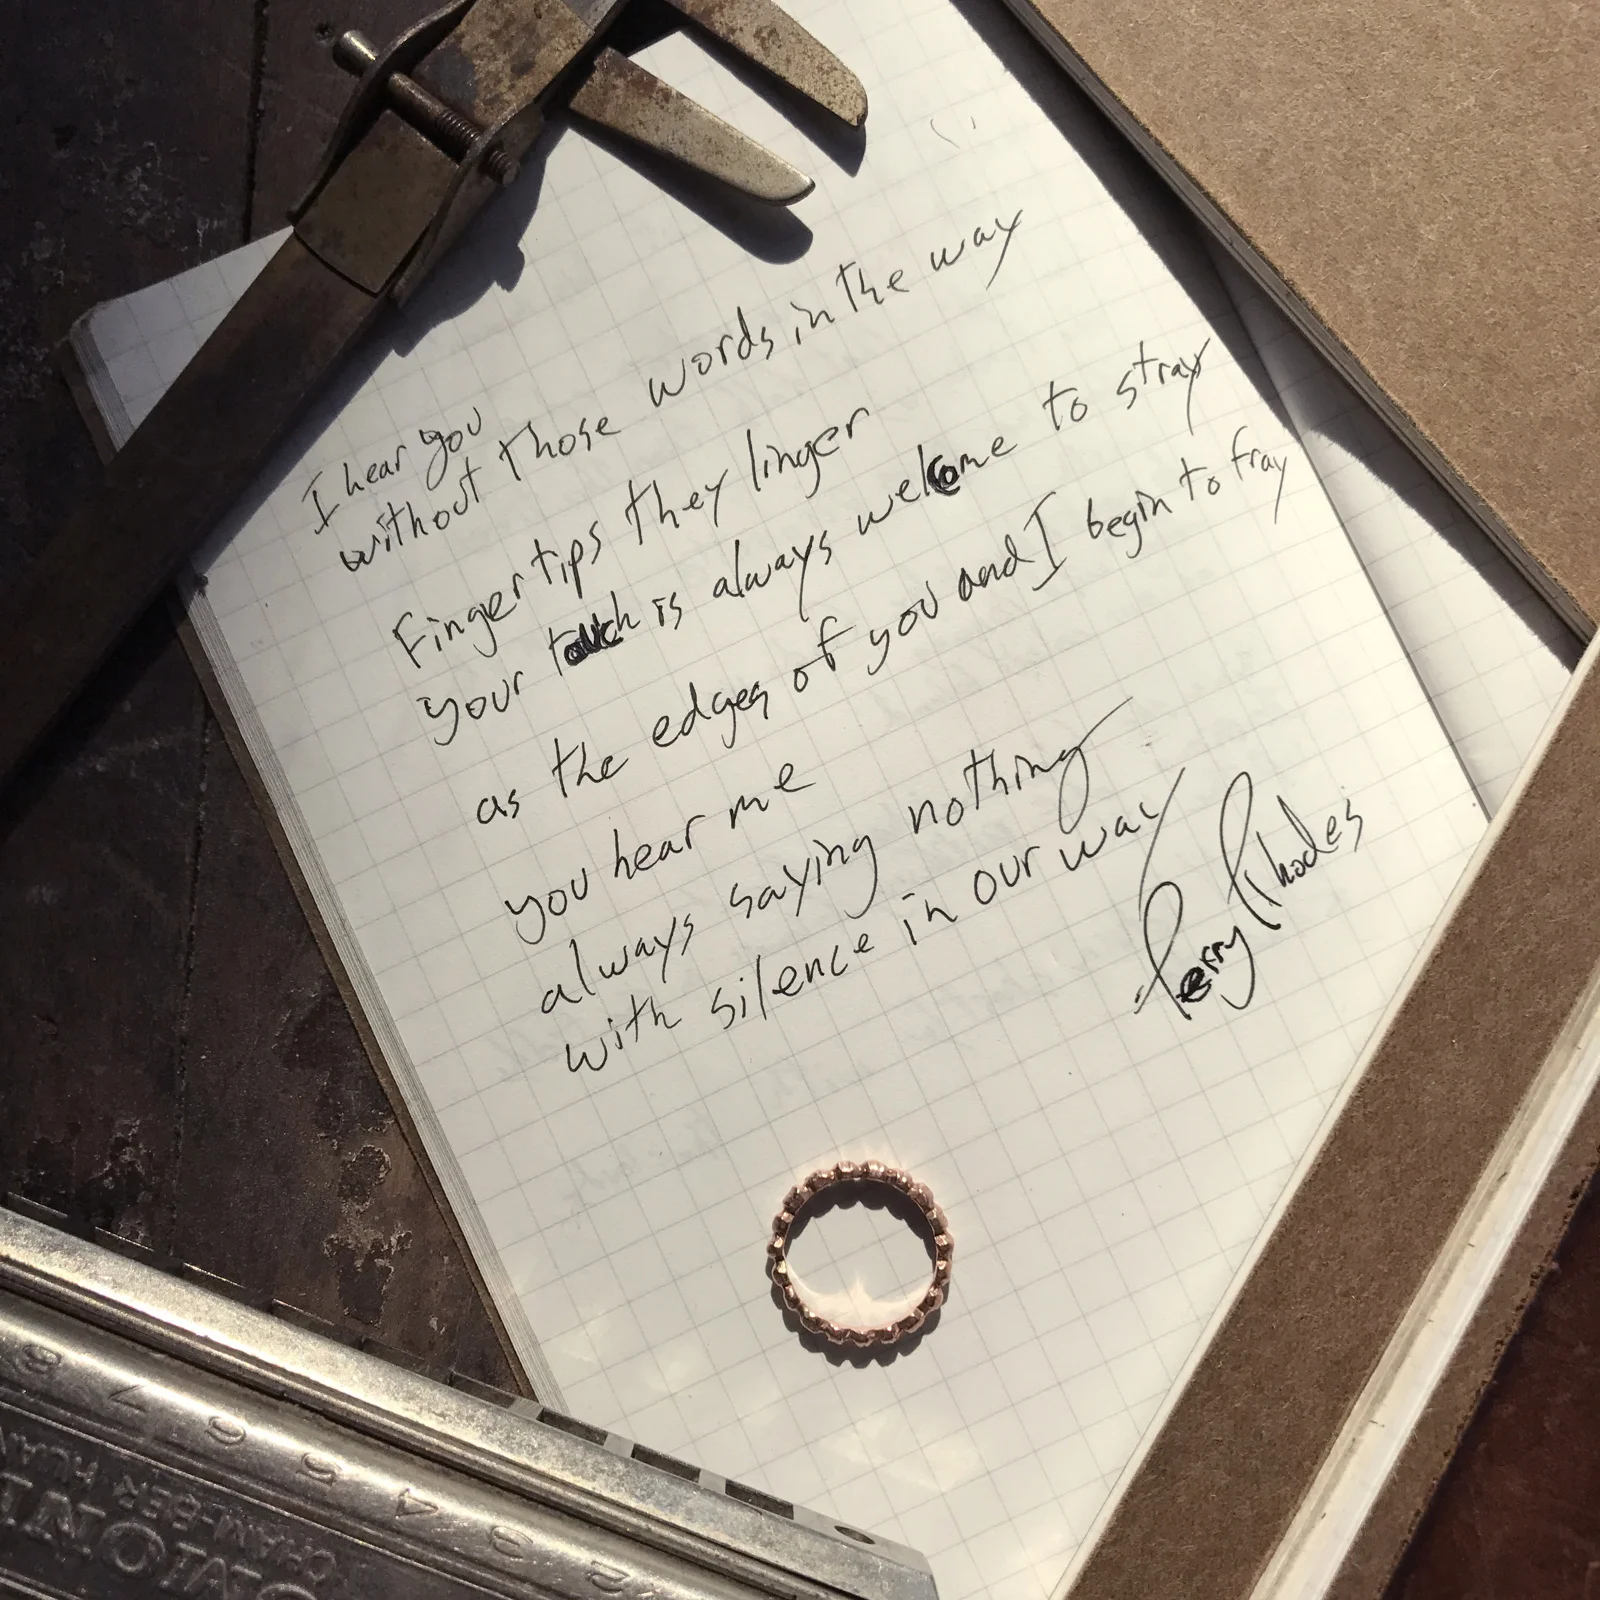 I hear you
without those words in the way
Finger tips they linger
your touch is always welcome to stray
as the edges of you and I begin to fray
you hear me
always saying nothing
with silence in our way
Perry Rhodes
8 7 6 5 4 3 2
CHAM-BER HUAN